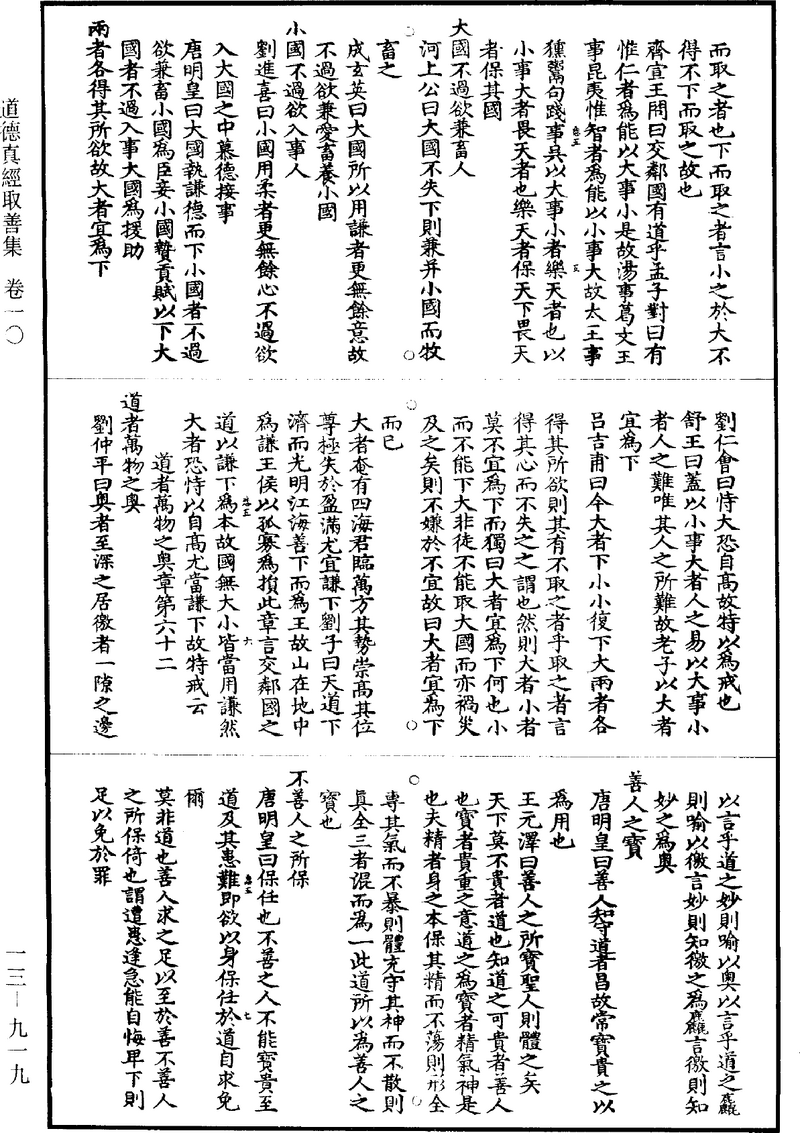 道德真經取善集　卷一〇
一三－九一九
而取之者也下而取之者言小之於大不
得不下而取之故也
齊宣王問曰交鄰國有道乎孟子對曰有
惟仁者為能以大事小是故湯事葛文王
事昆夷惟智者為能以小事大故太王事
獯鬻句踐事吳以大事小者樂天者也以
小事大者畏天者也樂天者保天下畏天
者保其國
大國不過欲兼畜人
河上公曰大國不失下則兼并小國而牧
畜之
成玄英曰大國所以用謙者更無餘意故
不過欲兼愛畜養小國
小國不過欲入事人
劉進喜曰小國用柔者更無餘心不過欲
入大國之中慕德接事
唐明皇曰大國執謙德而下小國者不過
欲兼畜小國為臣妾小國贄貢賦以下大
國者不過入事大國為援助
兩者各得其所欲故大者宜為下
劉仁會曰恃大恐自高故特以為戒也
舒王曰蓋以小事大者人之易以大事小
者人之難唯其人之所難故老子以大者
宜為下
呂吉甫曰今大者下小小復下大兩者各
得其所欲則其有不取之者乎取之者言
得其心而不失之之謂也然則大者小者
莫不宜為下而獨曰大者宜為下何也小
而不能下大非徒不能取大國而亦禍災
及之矣則不嫌於不宜故曰大者宜為下
而已
大者奄有四海君臨萬方其勢崇高其位
尊極失於盈滿尤宜謙下劉子曰天道下
濟而光明江海善下而為王故山在地中
為謙王侯以孤寡為損此章言交鄰國之
道以謙下為本故國無大小皆當用謙然
大者恐恃以自高尤當謙下故特戒云
道者萬物之奧章第六十二
道者萬物之奧
劉仲平曰奧者至深之居徼者一隙之邊
以言乎道之妙則喻以奧以言乎道之麤
則喻以徼言妙則知徼之為麤言徼則知
妙之為奧
善人之寶
唐明皇曰善人知守道者昌故常寶貴之以
為用也
王元澤曰善人之所寶聖人則體之矣
天下莫不貴者道也知道之可貴者善人
也寶者貴重之意道之為寶者精氣神是
也夫精者身之本保其精而不蕩則形全
專其氣而不暴則體充守其神而不散則
真全三者混而為一此道所以為善人之
寶也
不善人之所保
唐明皇曰保任也不善之人不能寶貴至
道及其患難即欲以身保任於道自求免
爾
莫非道也善人求之足以至於善不善人
之所保倚也謂遭患逢急能自悔卑下則
足以免於罪